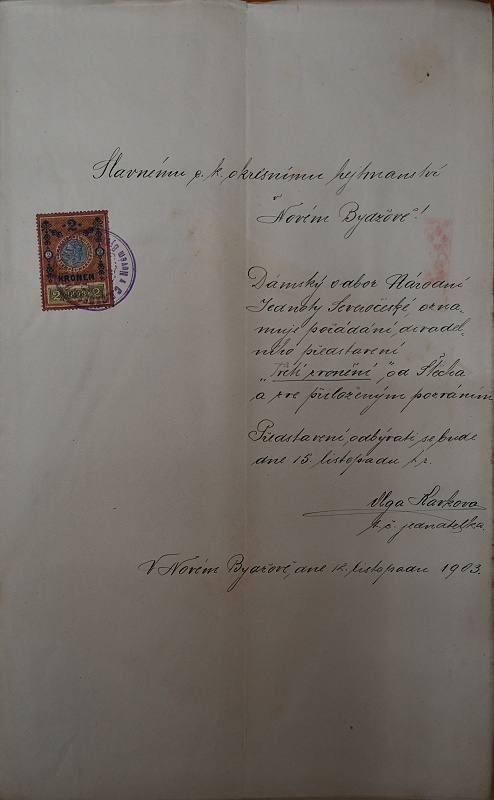 Slavnému c. k. okresnímu hejtmanství
v
Novém Bydžově!
2
KRONEN
2 2
Dámský odbor Národní
Jednoty Severočeské, ozna-
muje pořádání divadel-
ního představení
„Třetí zvonění", od Štecha
a zve přiloženým pozváním
Představení odbývati se bude
dne 15. listopadu t. r.
Olga
t. č. jednatelka.
V Novém Bydžově, dne 12. listopadu 1903.